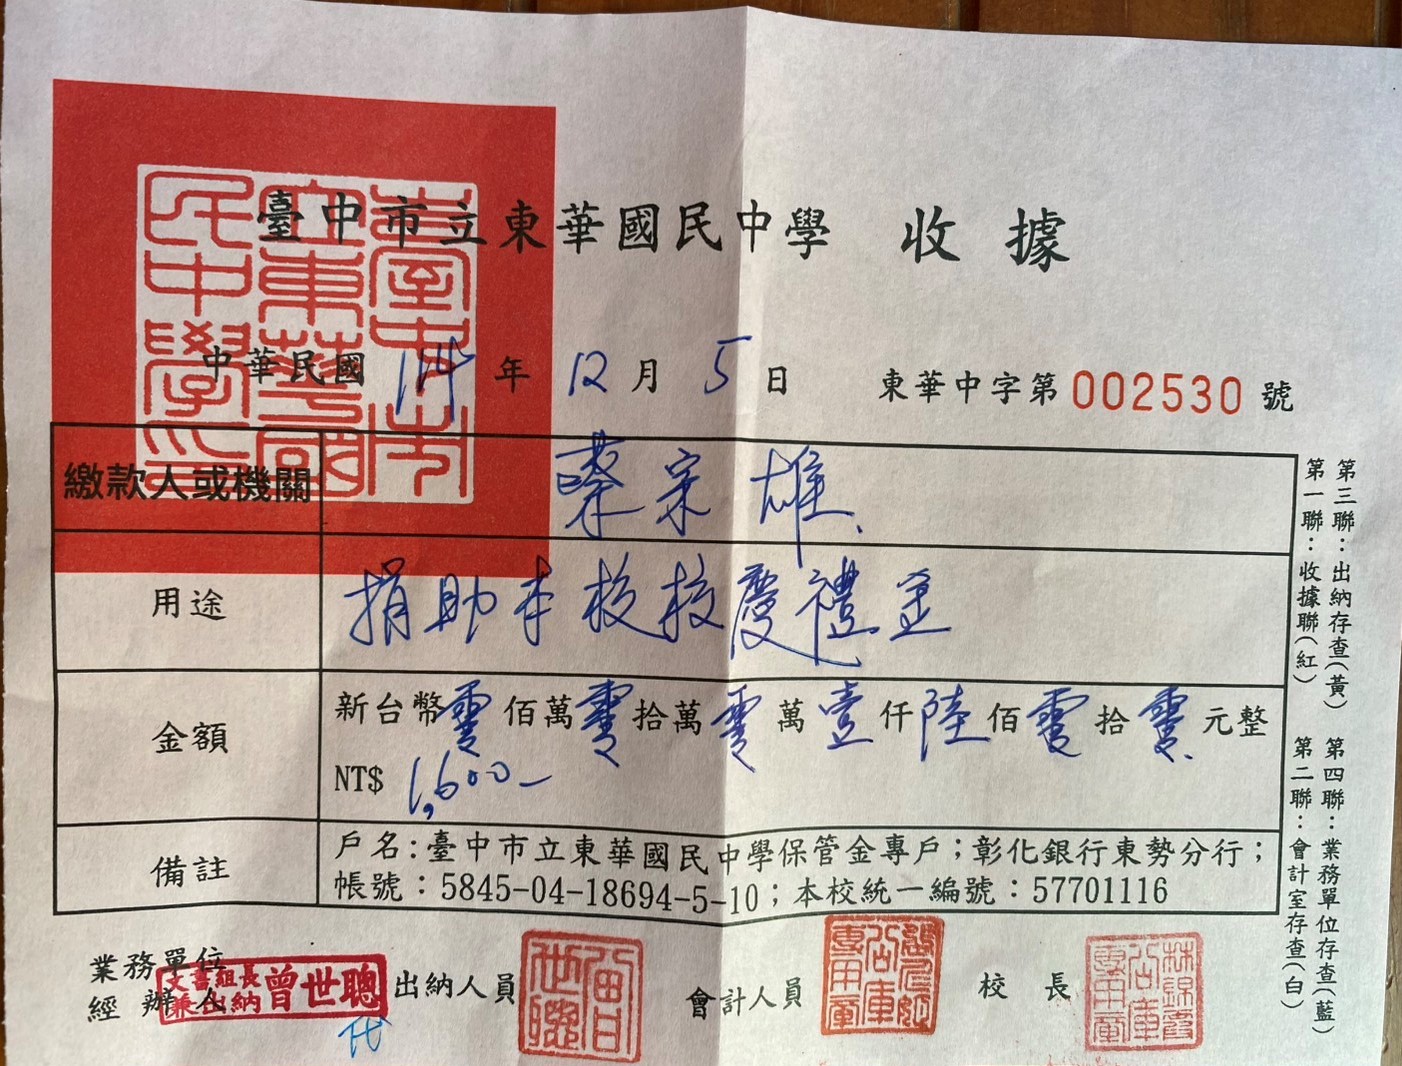 臺中市立東華國民中學 收據
中華民國 114 年 12 月 5 日 東華中字第 002530 號
繳款人或機關 蔡宗雄
用途 捐助本校校慶禮金
金額 新台幣 零 佰萬 零 拾萬 零 萬 壹 仟 陸 佰 零 拾 零 元整
NT$ 1,600-
備註 戶名:臺中市立東華國民中學保管金專戶;彰化銀行東勢分行;
帳號:5845-04-18694-5-10;本校統一編號:57701116
業務單位
經辦人
文書組長
兼出納 曾世聰
代
出納人員
曾世聰
會計人員
校長
林錦霞
公庫
專用章
第一聯:收據聯(紅) 第二聯:會計室存查(白)
第三聯:出納存查(黃) 第四聯:業務單位存查(藍)
臺中市
立東華國
民中學